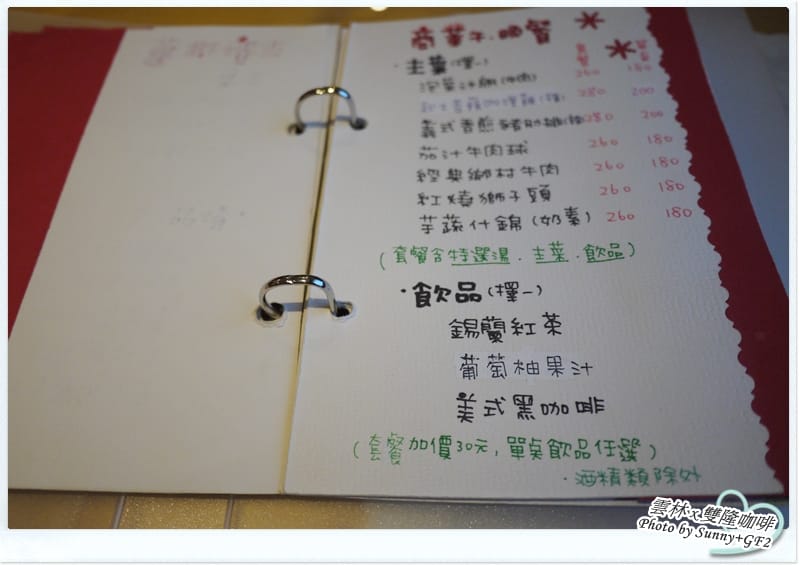 商業午.晚餐
·主菜(擇一) 套餐 單點
泡菜汁鍋(牛肉) 260 180
280 200
義式香煎豬肋排 280 200
茄汁牛肉球 260 180
經典鄉村牛肉 260 180
紅燒獅子頭 260 180
芋蔬什錦(奶素) 260 180
(套餐含特選湯.主菜.飲品)
·飲品(擇一)
錫蘭紅茶
葡萄柚果汁
美式黑咖啡
(套餐加價30元,單點飲品任選)
·酒精類除外
雲林x雙隆咖啡
Photo by Sunny+GF2